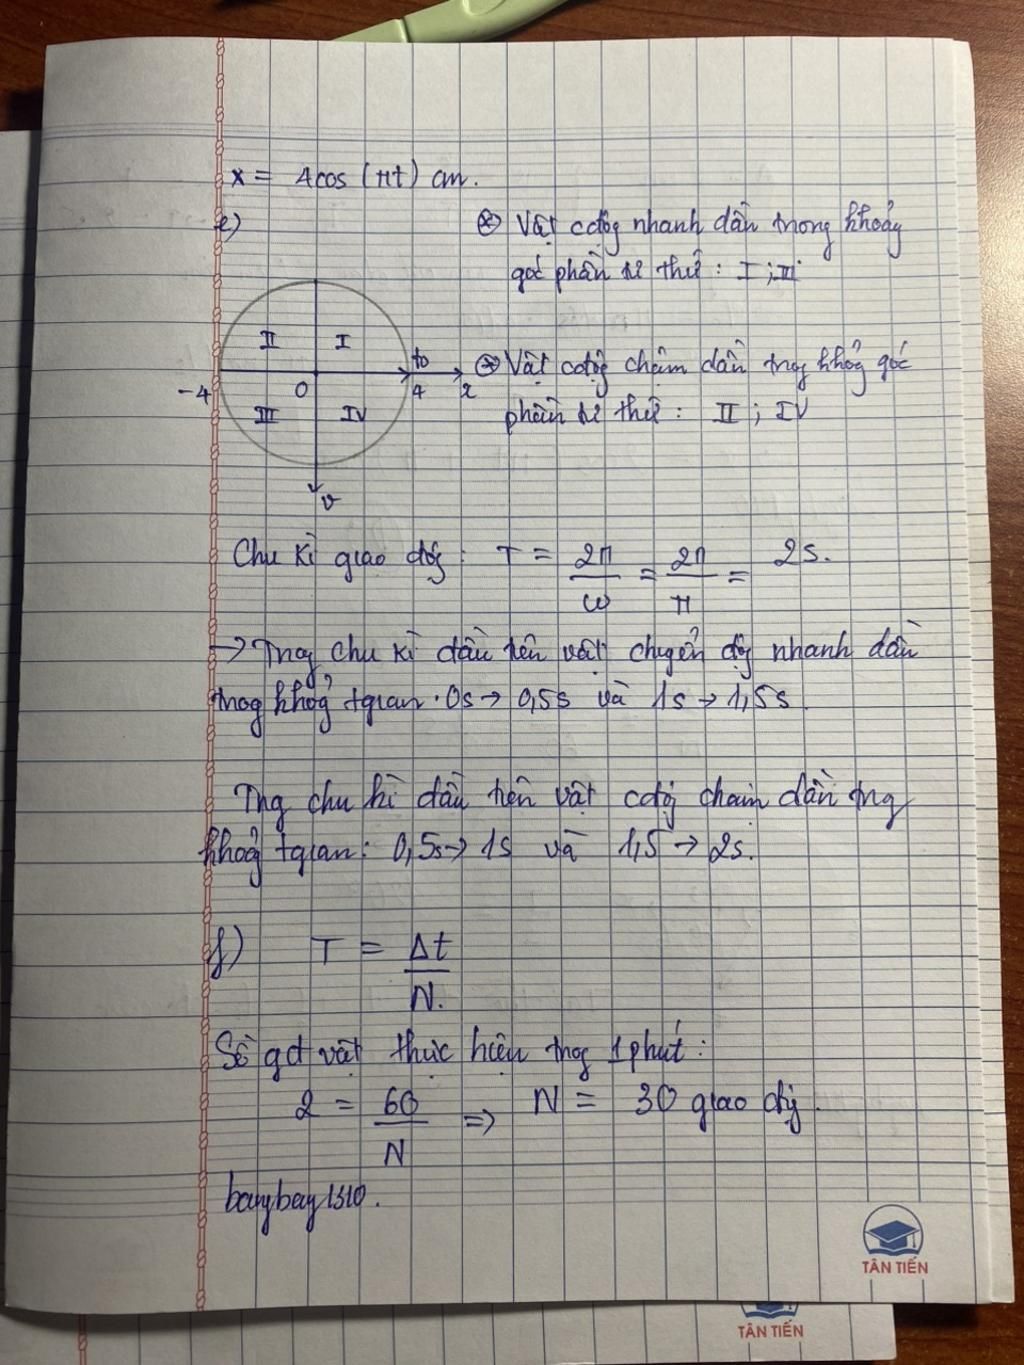 x = 4cos (πt) cm.
e)
⊛ Vật cđộg nhanh dần trong khoảg
góc phần tư thứ : I ; III
II I
to
-4 O 4 x
III IV
v
⊛ Vật cđộg chậm dần trog khoảg góc
phần tư thứ : II ; IV
Chu kì giao độg : T = 2π/ω = 2π/π = 2s.
→ Trog chu kì đầu tiên vật chuyển độg nhanh dần
trog khoảg tgian : 0s → 0,5s và 1s → 1,5s.
Trog chu kì đầu tiên vật cđộg chậm dần trog
khoảg tgian : 0,5s → 1s và 1,5 → 2s.
f) T = Δt/N.
Số gđ vật thực hiện trog 1 phút :
2 = 60/N ⇒ N = 30 giao độg.
baybay1310.
TÂN TIẾN
TÂN TIẾN